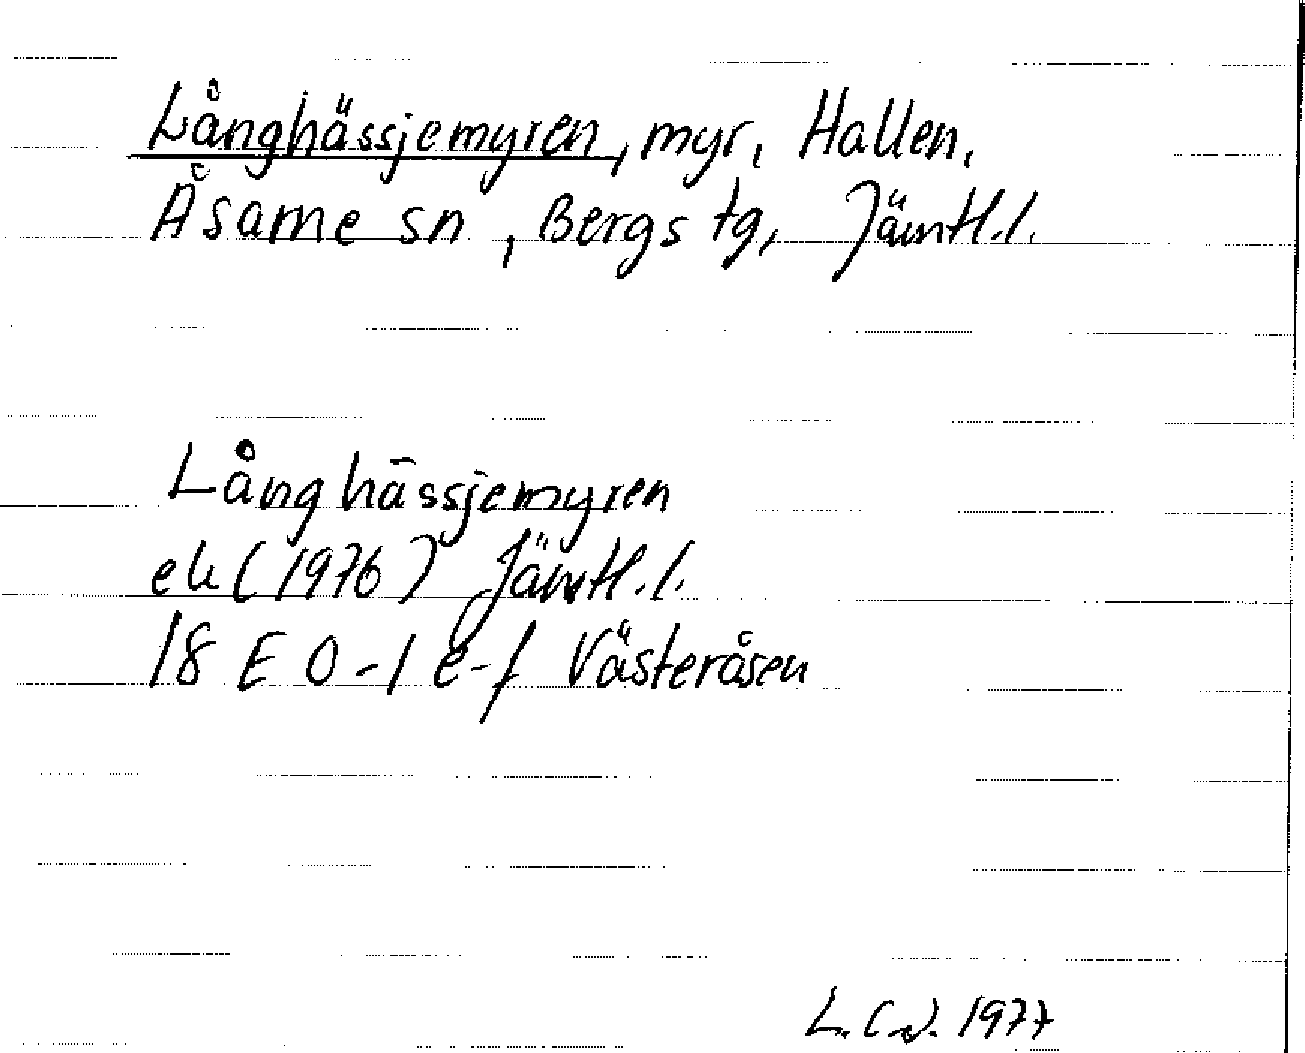 Långhässjemyren, myr, Hallen,
Åsarne sn, Bergs tg, Jämtl.l.
Långhässjemyren
ek (1976) Jämtl.l.
18 E 0-1 e-f Västeråsen
1977